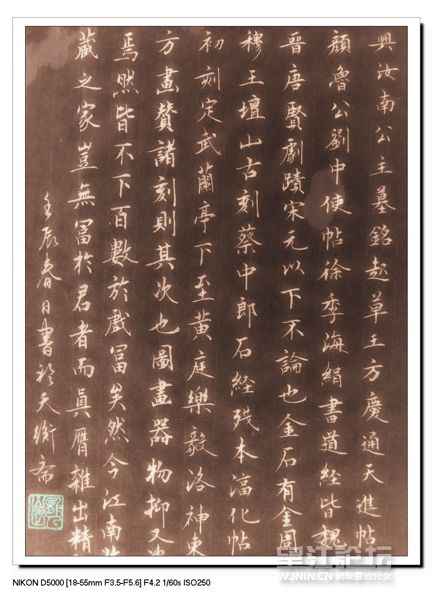 興汝南公主墓銘起草王方慶通天進帖
顏魯公劉中使帖徐季海絹書道經皆魏
晉唐賢劇蹟宋元以下不論也金石有周
穆王壇山古刻蔡中郎石經殘本淳化帖
初刻定武蘭亭下至黃庭樂毅洛神東
方畫贊諸刻則其次也圖畫器物抑又
焉然皆不下百數於戲冨矣然今江南
藏之家豈無冨於君者而真贗雜出精
壬辰春日書於天衡斋
望江论坛
WJNIN.CN
NIKON D5000 [18-55mm F3.5-F5.6] F4.2 1/60s ISO250